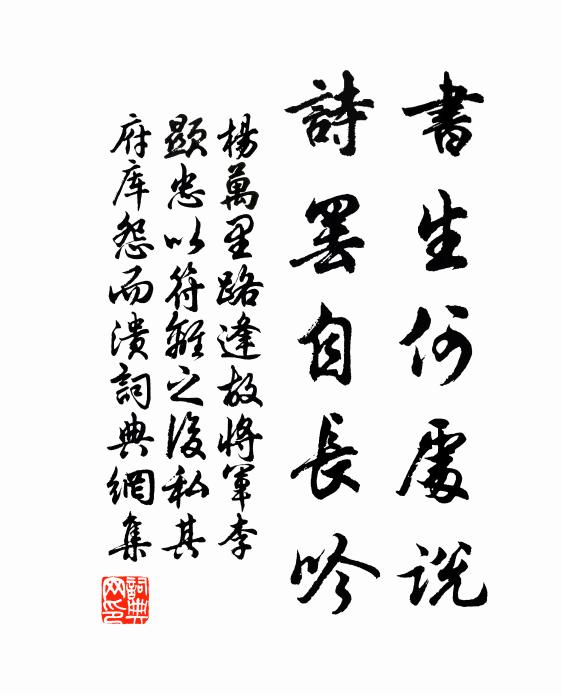 書生何處說
詩罷自長吟
楊萬里路逢故將軍李
顯忠以符離之役私其
府库怨而潰詞典網集
詞典网印